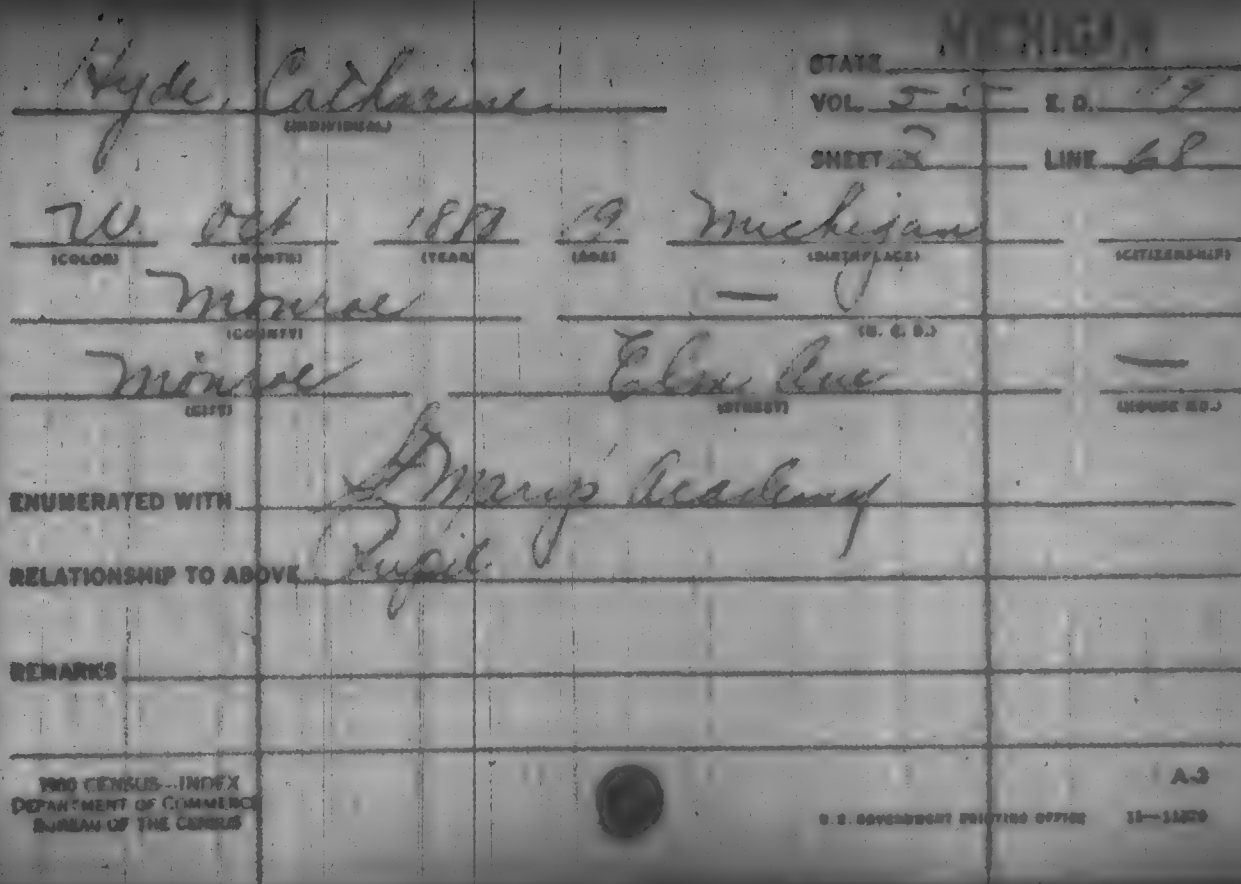 MICHIGAN
Hyde, Catharine
(INDIVIDUAL)
STATE
VOL. 55 E. D.
SHEET LINE 68
W Oct 1880 19 Michigan
(COLOR) (MONTH) (YEAR) (AGE) (BIRTHPLACE) (CITIZENSHIP)
Monroe —
(COUNTY) (M. C. D.)
Monroe Elm Ave —
(CITY) (STREET) (HOUSE NO.)
ENUMERATED WITH St Mary's Academy
RELATIONSHIP TO ABOVE Pupil
REMARKS
1900 CENSUS—INDEX
DEPARTMENT OF COMMERCE
BUREAU OF THE CENSUS
A-3
U. S. GOVERNMENT PRINTING OFFICE